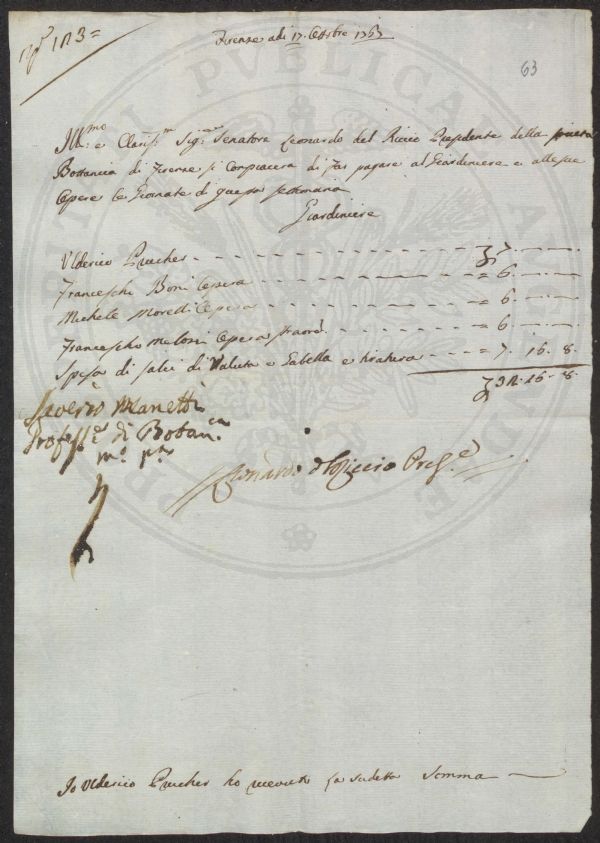 N° 113 =
Firenze adi 17. Ottobre 1763
63
Ill:mo e Claris:mo Sig:re Senatore Leonardo del Riccio Presidente della società
Bottanica di Firenze si Compiacerà di far pagare al Giardiniere e alle sue
Opere le Giornate di questa settimana
Giardiniere
Ulderico Prucher - - - - 7. - - -
Franceschi Boni Opera - - - = 6. - - -
Michele Moredi Opera - - - = 6. - - -
Francescho Meloni Opera straord. - - - = 6. - - -
Spesa di salci di Valuta e Gabella e - - - = 7. 16. 8.
32. 16. 8.
Saverio Manetti
Profess.e di Botan.ca
m.o p.a
Leonardo del Riccio Pres.e
Io Ulderico Prucher ho riceuto la sudetta Somma
PUBLICAE